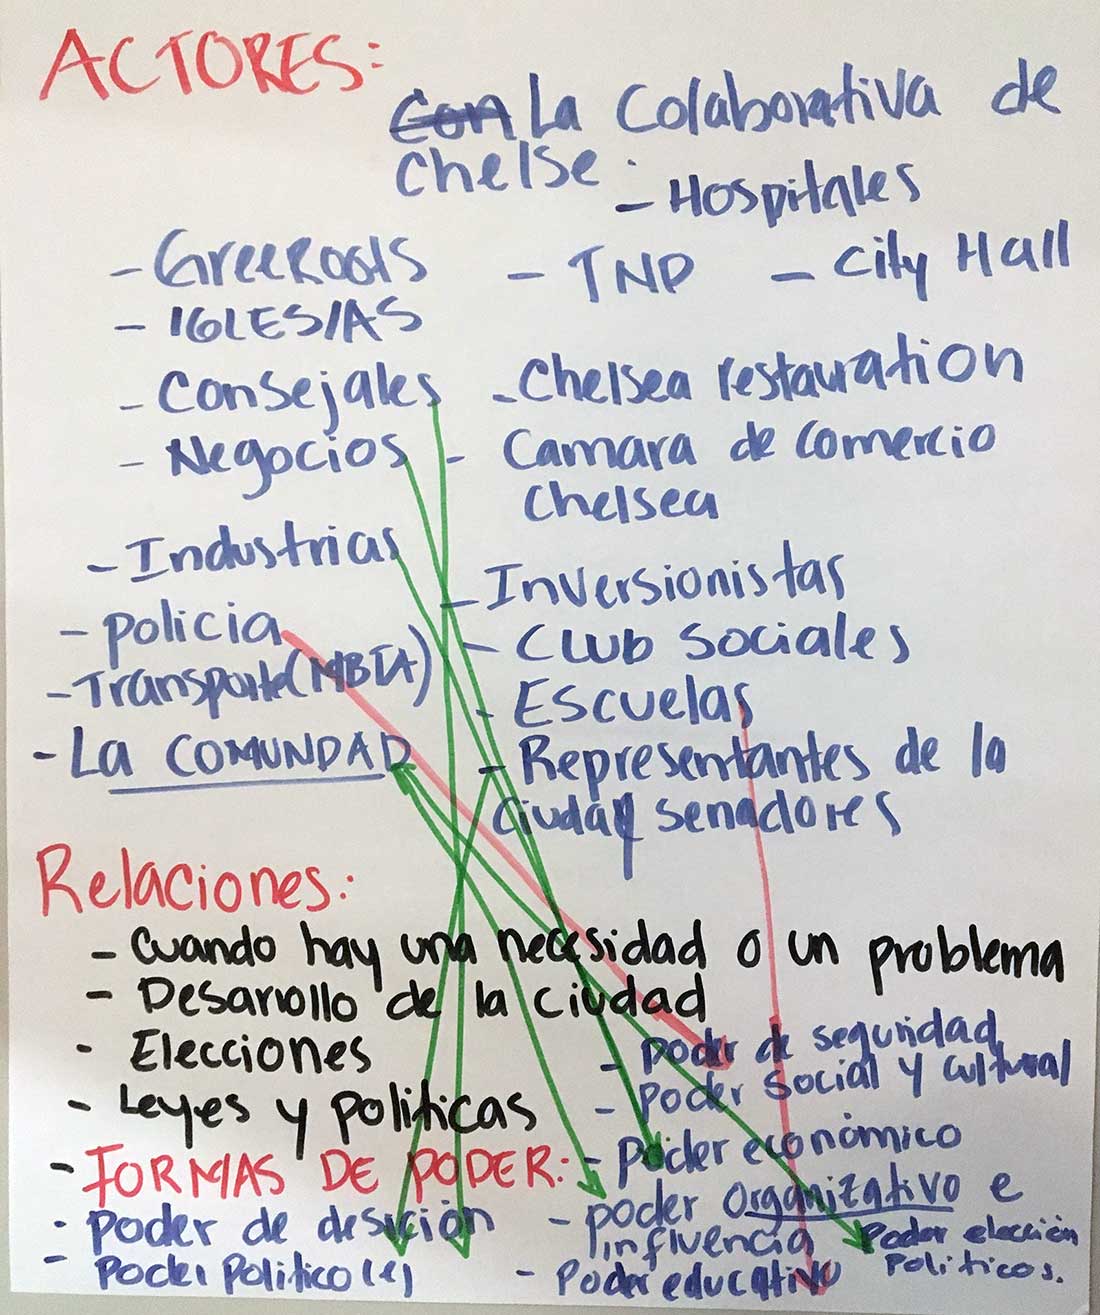 ACTORES:
Con La Colaborativa de
Chelse.
- Hospitales
- GreeRoots - TNP - City Hall
- IGLESIAS
- Consejales - Chelsea restauration
- Negocios - Camara de Comercio
Chelsea
- Industrias - Inversionistas
- policia - Club Sociales
- Transporte (MBTA) - Escuelas
- La COMUNDAD - Representantes de la
Ciudad y senadores
Relaciones:
- Cuando hay una necesidad o un problema
- Desarrollo de la Ciudad
- Elecciones - poder de seguridad
- Leyes y politicas - poder Social y cultural
- FORMAS DE PODER: - poder económico
- poder de desición - poder Organizativo e
influencia
- Poder Politico - Poder educativo
Poder elección
Politicos.